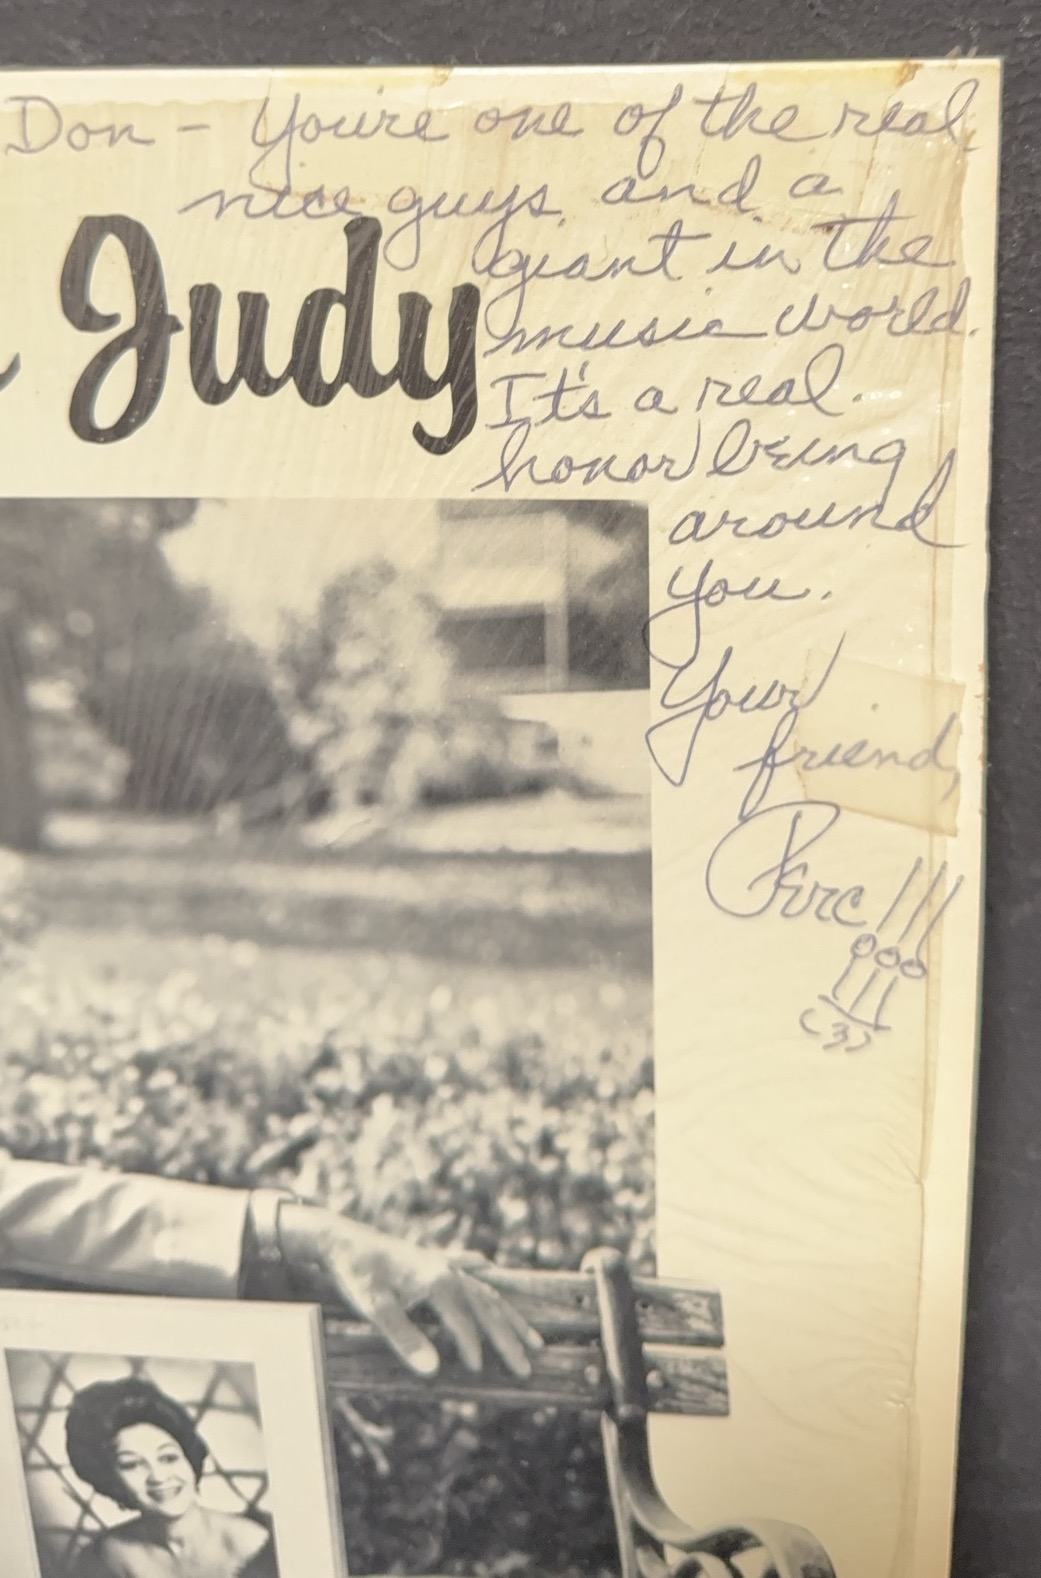 Don - You're one of the real
nice guys, and a
giant in the
music world.
It's a real
honor being
around
you.
Your
friend,
Perc !!!
(3)
Judy